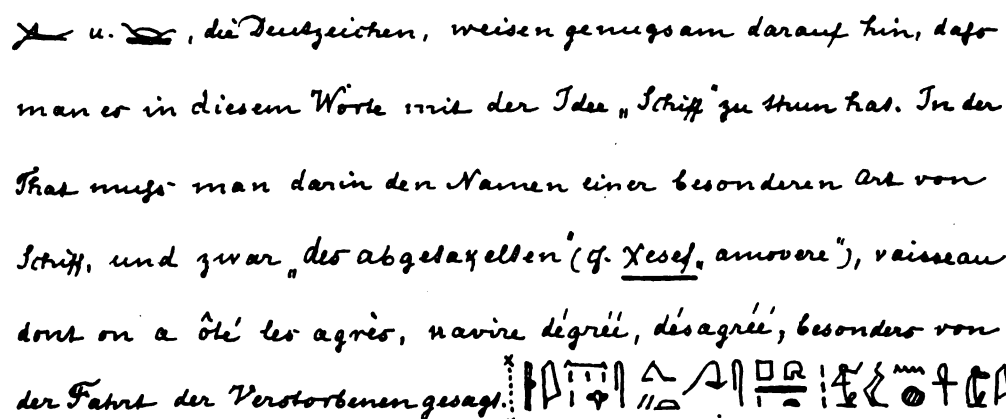 u. , die Deutzeichen, weisen genugsam darauf hin, dafs
man es in diesem Worte mit der Idee „Schiff“ zu thun hat. In der
That mufs man darin den Namen einer besonderen Art von
Schiff, und zwar „des abgetakelten“ (cf. χesef „amovere“), vaisseau
dont on a ôté les agrès, navire dégréé, désagréé, besonders von
der Fahrt der Verstorbenen gesagt.